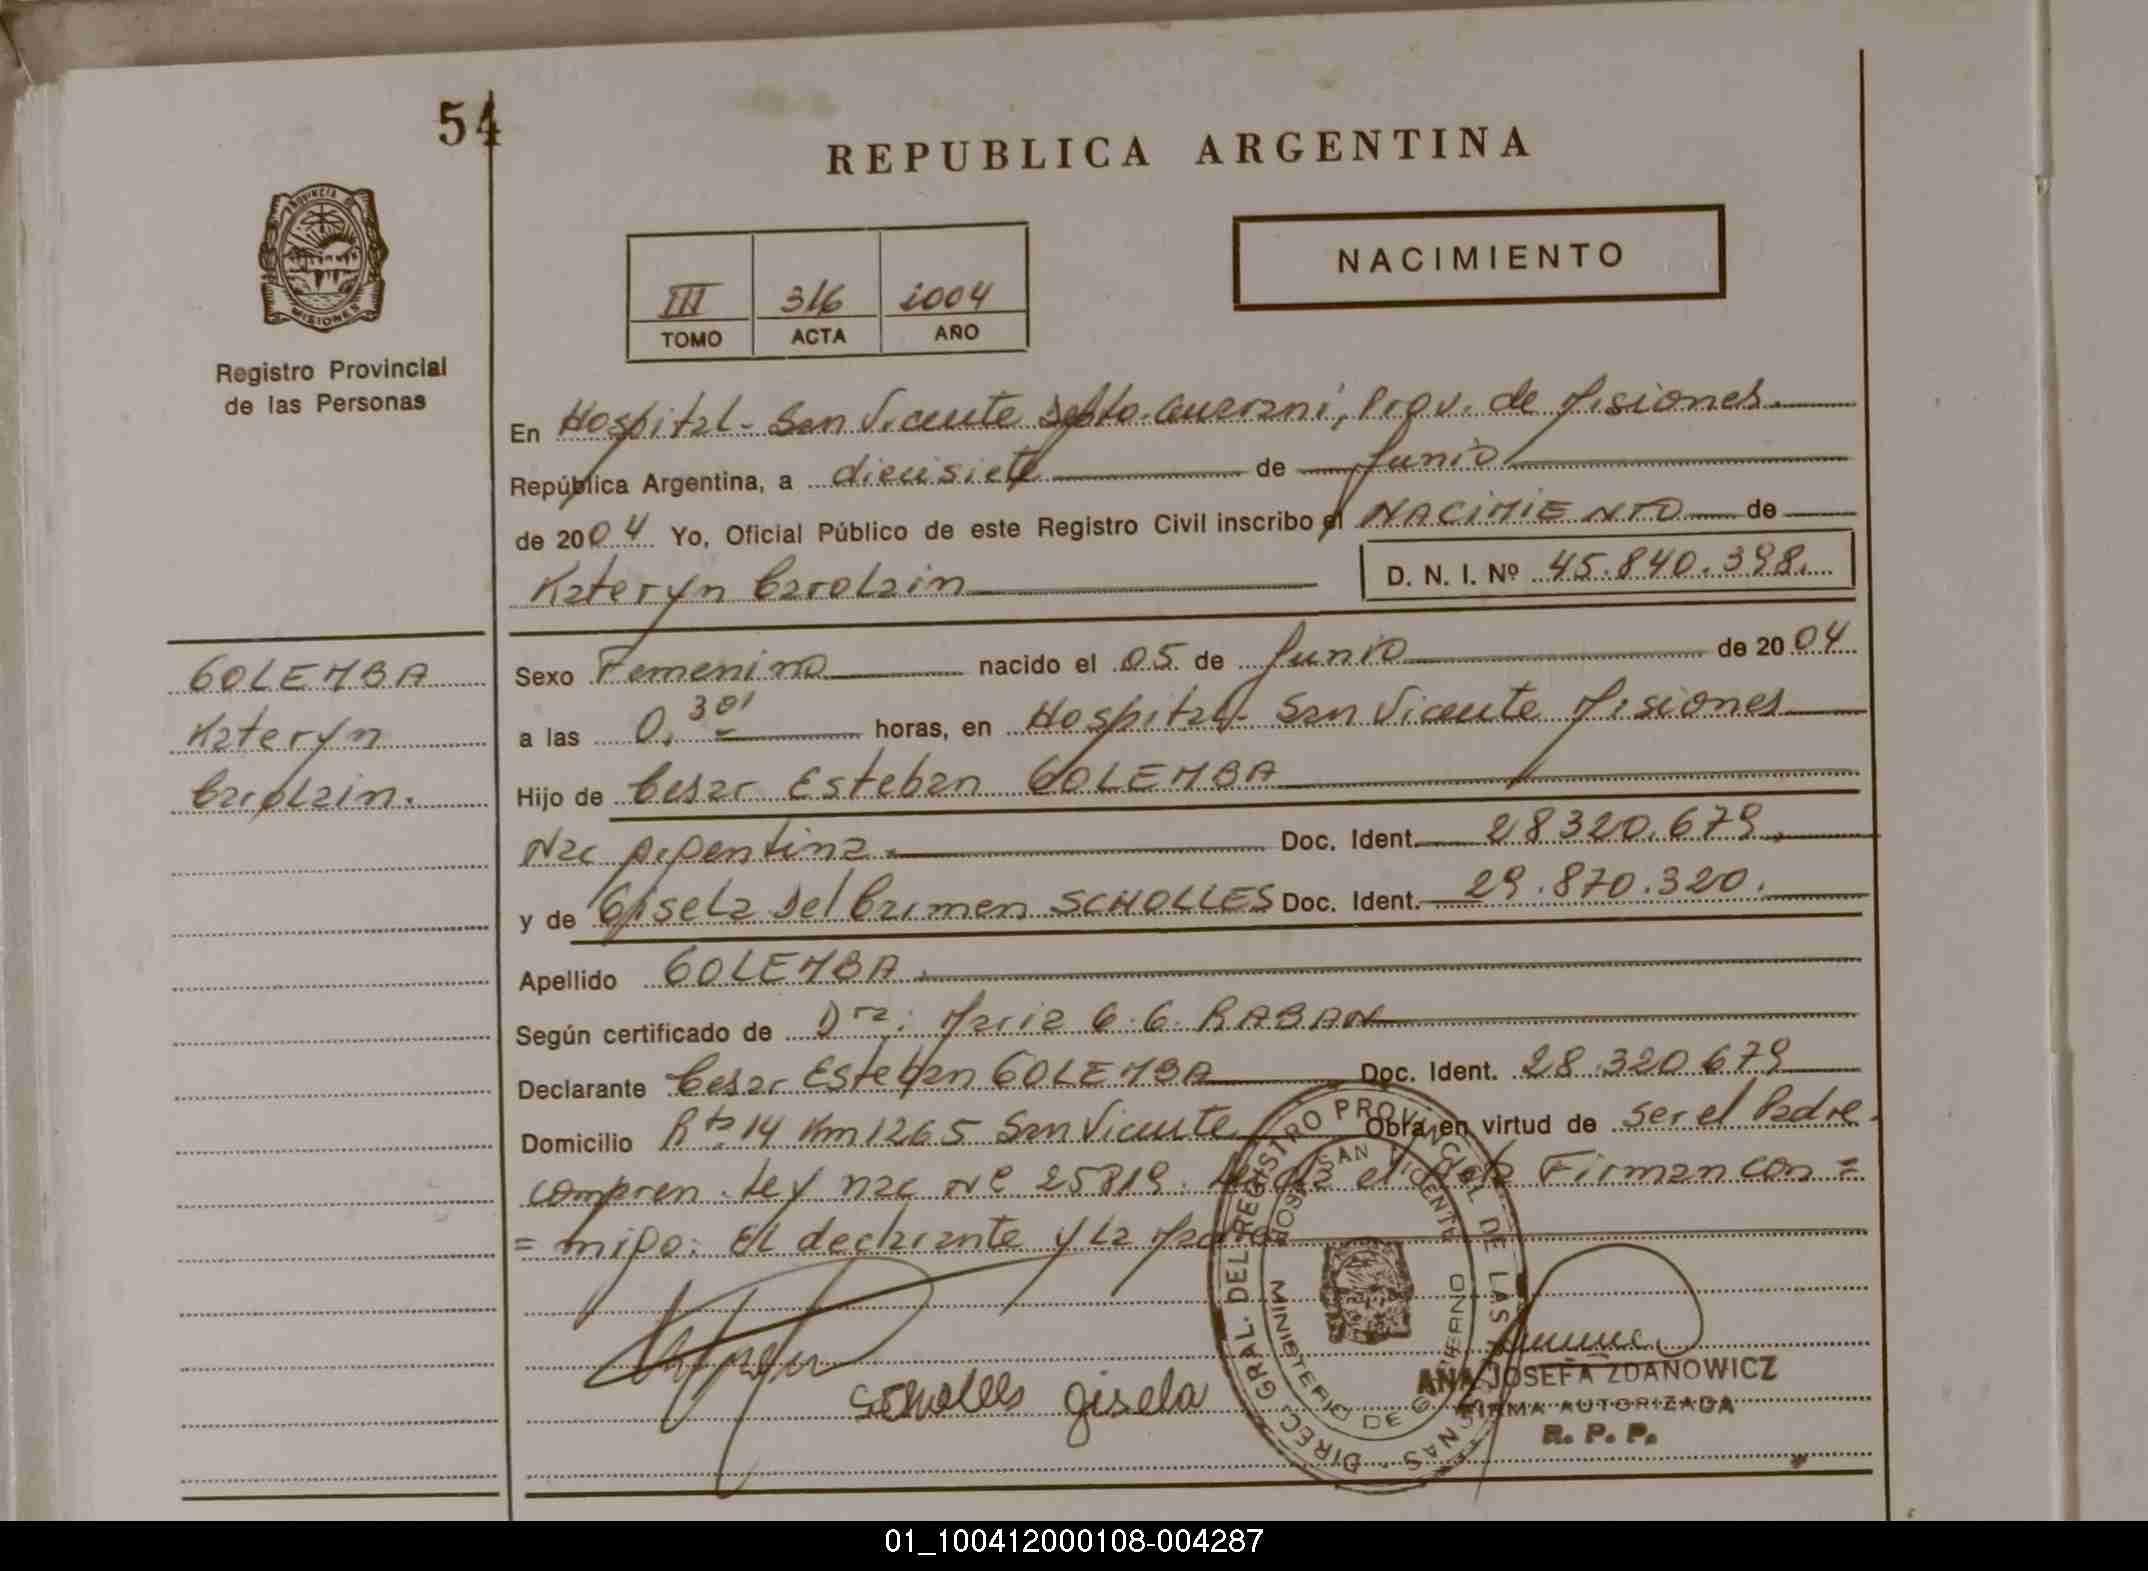 54
REPUBLICA ARGENTINA
PROVINCIA DE
MISIONES
Registro Provincial
de las Personas
NACIMIENTO
III 316 2004
TOMO ACTA AÑO
En Hospital - San Vicente Depto. Guarani, Prov. de Misiones.
República Argentina, a diecisiete de Junio
de 2004 Yo, Oficial Público de este Registro Civil inscribo el NACIMIENTO de
Kateryn Carolain D. N. I. Nº 45.840.398.
GOLEMBA
Kateryn
Carolain.
Sexo Femenino nacido el 05 de Junio de 2004
a las 0,30' horas, en Hospital - San Vicente Misiones
Hijo de Cesar Esteban GOLEMBA
Nac Argentina. Doc. Ident. 28320.679.
y de Gisela Del Carmen SCHOLLES Doc. Ident. 29.870.320.
Apellido GOLEMBA.
Según certificado de Dra: Maria G. G. RABAN
Declarante Cesar Esteban GOLEMBA Doc. Ident. 28.320679
Domicilio Rta 14 Km 1265 San Vicente Obra en virtud de ser el Padre.
compren. Ley nac Nº 25819. el Acta Firman con =
= migo: El declarante y La Madre
Scholles Gisela
DIREC. GRAL. DEL REGISTRO PROVINCIAL DE LAS PERSONAS
HOSP. SAN VICENTE
MINISTERIO DE GOBIERNO
ANA JOSEFA ZDANOWICZ
FIRMA AUTORIZADA
R. P. P.
01_100412000108-004287